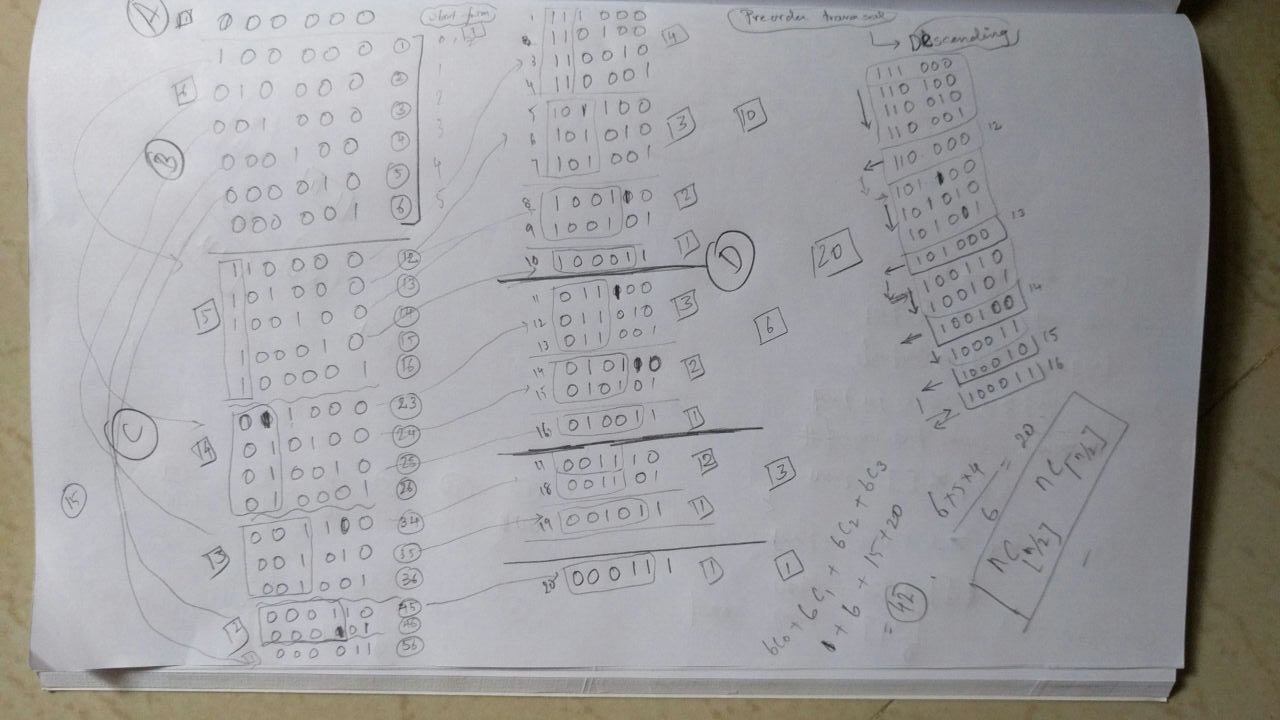 A
0 0 0 0 0 0
1 0 0 0 0 0 1
0 1 0 0 0 0 2
0 0 1 0 0 0 3
B
0 0 0 1 0 0 4
0 0 0 0 1 0 5
0 0 0 0 0 1 6
Short form
0, 1
1
2
3
4
5
C
5
1 1 0 0 0 0 12
1 0 1 0 0 0 13
1 0 0 1 0 0 14
1 0 0 0 1 0 15
1 0 0 0 0 1 16
4
0 1 1 0 0 0 23
0 1 0 1 0 0 24
0 1 0 0 1 0 25
0 1 0 0 0 1 26
15
3
0 0 1 1 0 0 34
0 0 1 0 1 0 35
0 0 1 0 0 1 36
2
0 0 0 1 1 0 45
0 0 0 1 0 1 46
0 0 0 0 1 1 56
1 1 1 1 0 0 0
1 1 0 1 0 0 4
3 1 1 0 0 1 0
4 1 1 0 0 0 1
5 1 0 1 1 0 0
6 1 0 1 0 1 0 3 10
7 1 0 1 0 0 1
8 1 0 0 1 1 0 2
9 1 0 0 1 0 1
10 1 0 0 0 1 1 1
D
20
11 0 1 1 1 0 0 3
12 0 1 1 0 1 0 6
13 0 1 1 0 0 1
14 0 1 0 1 1 0 2
15 0 1 0 1 0 1
16 0 1 0 0 1 1 1
17 0 0 1 1 1 0 2
18 0 0 1 1 0 1 3
19 0 0 1 0 1 1 1
20 0 0 0 1 1 1 1 1
Preorder traversal
Descending
111 000
110 100
110 010
110 001
110 000 12
101 100
101010
101001
101000 13
100110
100101
100100 14
100011
100010 15
100011 16
6C0 + 6C1 + 6C2 + 6C3
1 + 6 + 15 + 20
= 42.
6×5×4
6
= 20
nC[n/2] nC[n/2]